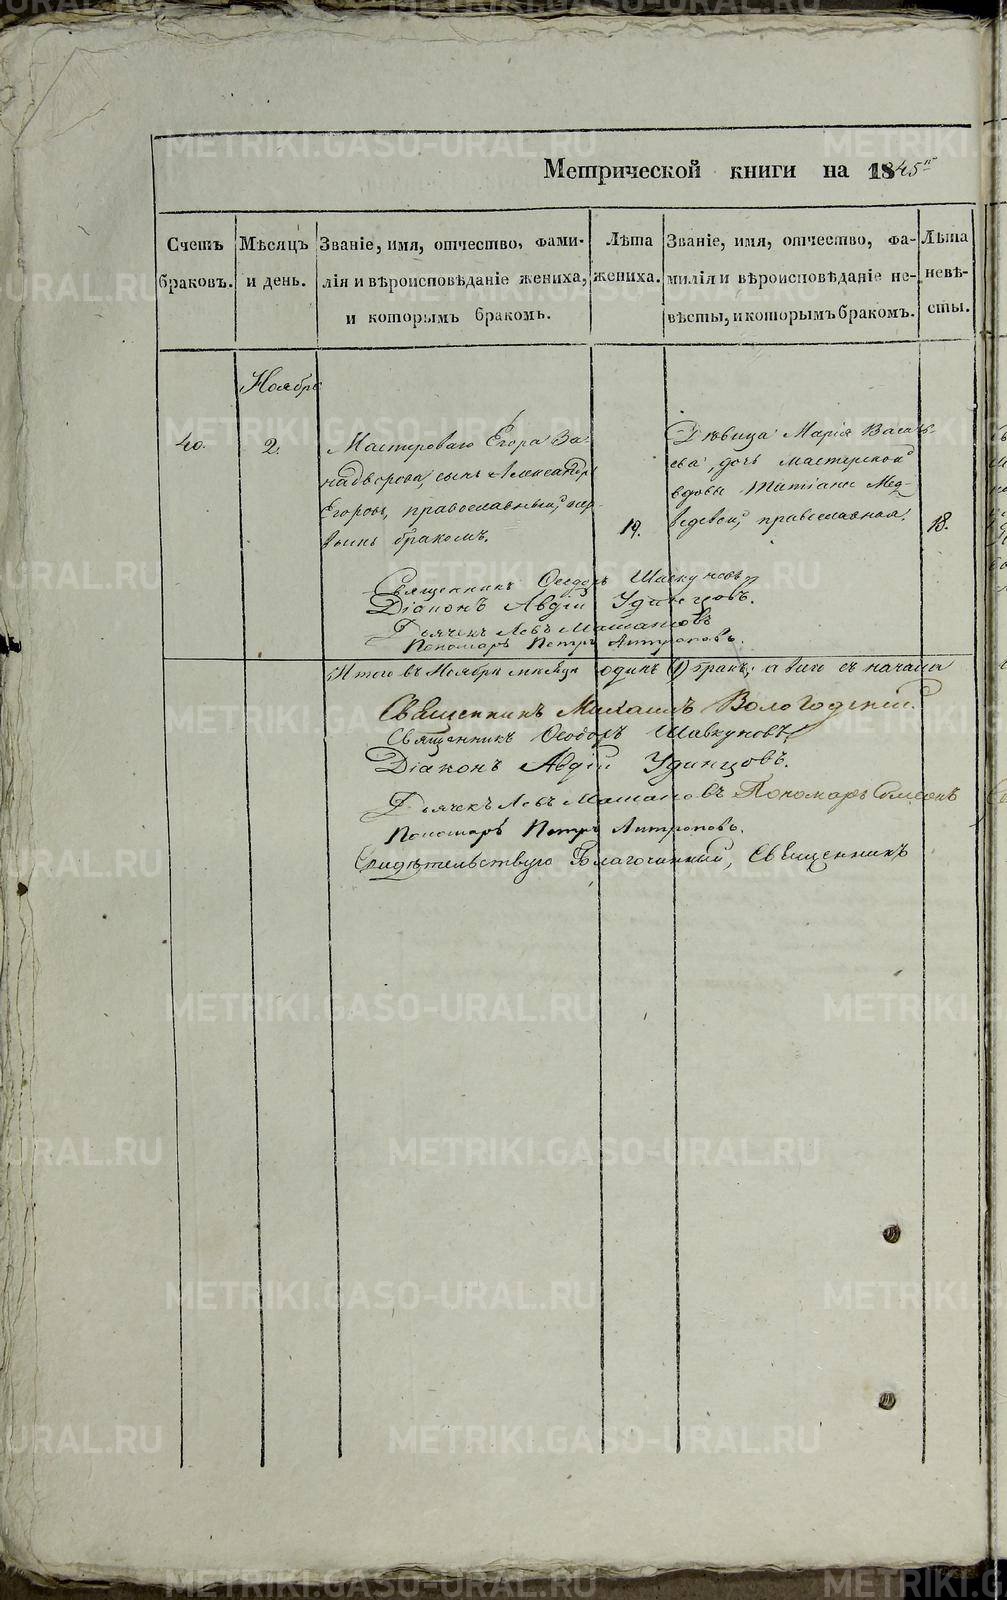 Метрической книги на 1845й
Счетъ браковъ.
Мѣсяцъ и день.
Званіе, имя, отчество, фами-
лія и вѣроисповѣданіе жениха,
и которымъ бракомъ.
Лѣта жениха.
Званіе, имя, отчество, фа-
милія и вѣроисповѣданіе не-
вѣсты, и которымъ бракомъ.
Лѣта невѣ-
сты.
Ноябрь
40.
2.
Мастероваго Егора За
надворова, сынъ Александръ
Егоровъ, православный, пер-
вымъ бракомъ.
19.
Дѣвица Марія Василь-
ева, дочь мастерской
вдовы Татіаны Мед-
ведевой, православная.
18.
Священникъ Ѳеодоръ Шавкуновъ
Діаконъ Авдій Удинцовъ.
Дьячекъ Левъ
Пономарь Петръ Антроповъ.
Итого въ Ноябрѣ мѣсяцѣ одинъ (1) бракъ; а всего съ начала
Священникъ Михаилъ Вологодский
Священникъ Ѳеодоръ Шавкуновъ
Діаконъ Авдій Удинцовъ.
Дьячекъ Левъ Пономарь Симеонъ
Пономарь Петръ Антроповъ.
Свидѣтельствую Благочинный, Священникъ
METRIKI.GASO-URAL.RU